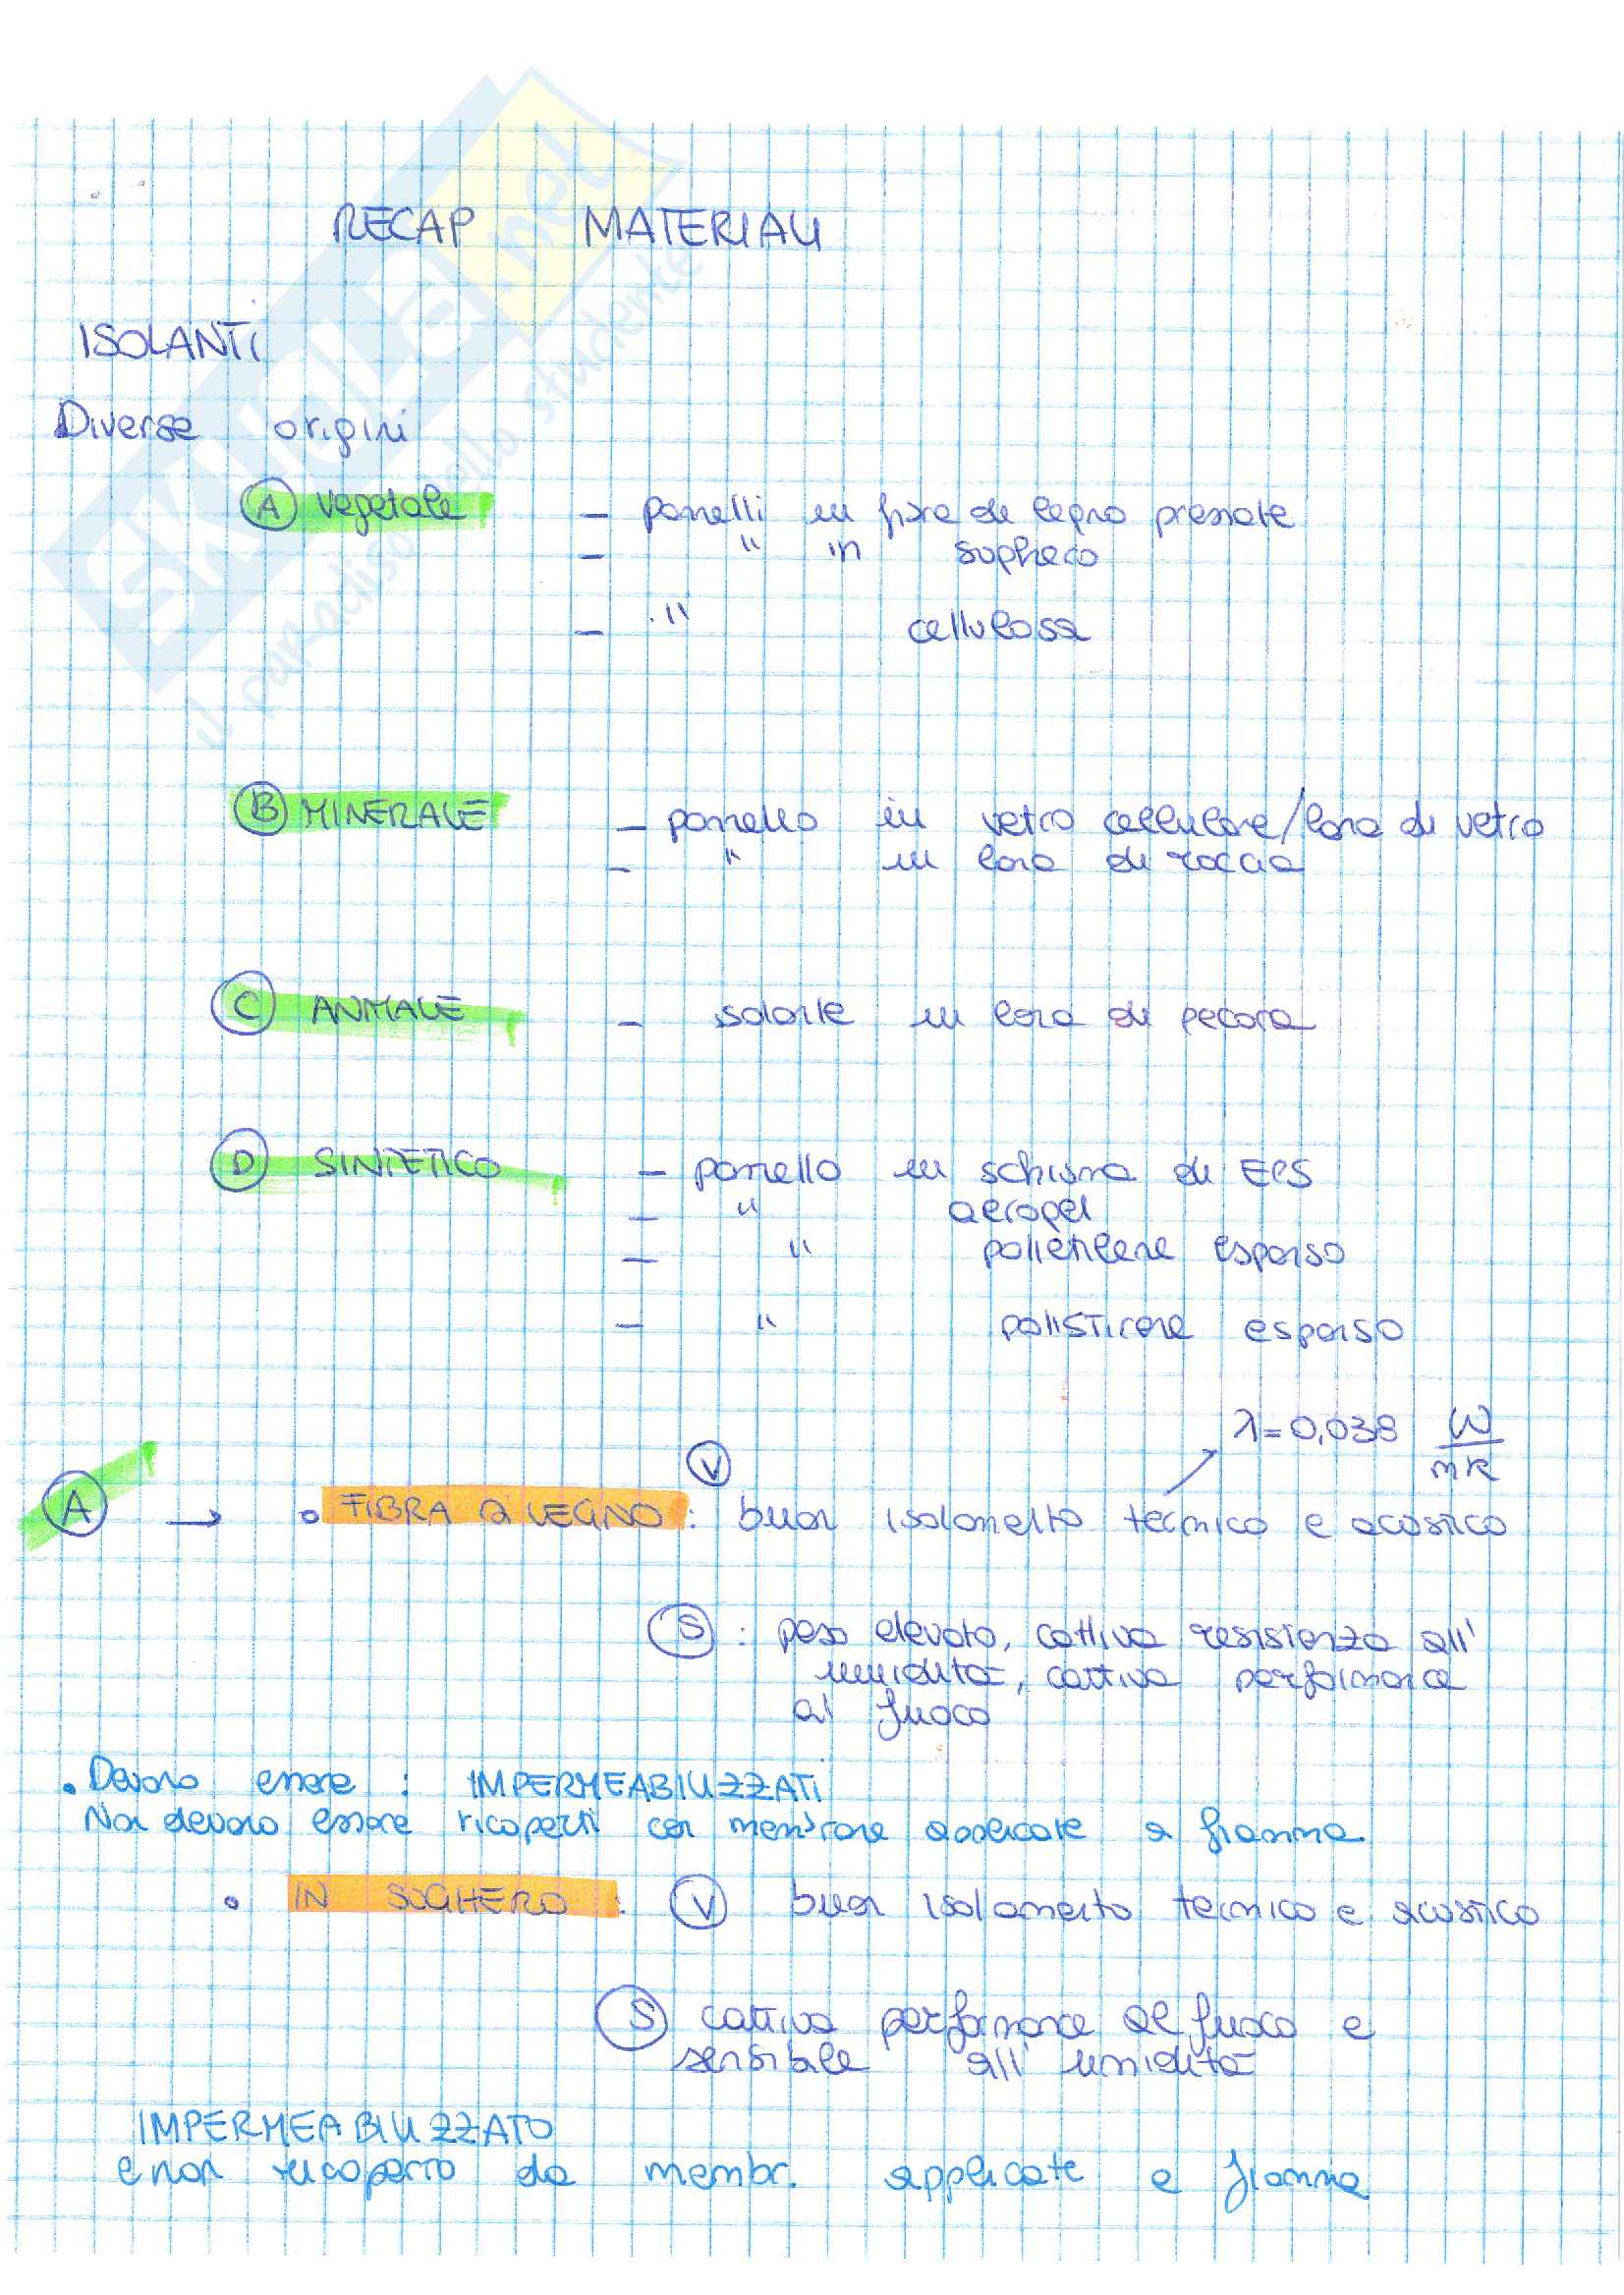 RECAP MATERIALI
ISOLANTI
Diverse origini
A vegetale - pannelli in fibra di legno pressate
- " in sughero
- " cellulosa
B MINERALE - pannello in vetro cellulare/lana di vetro
- " in lana di roccia
C ANIMALE - isolante in lana di pecora
D SINTETICO - pannello in schiuma di EPS
- " aerogel
- " polietilene espanso
- " polistirene espanso
λ=0,038 W/mK
A → • FIBRA DI LEGNO: V buon isolamento termico e acustico
S : peso elevato, cattiva resistenza all'
umidità, cattiva performance
al fuoco
• Devono essere : IMPERMEABILIZZATI
Non devono essere ricoperti con membrane applicate a fiamma
• IN SUGHERO : V buon isolamento termico e acustico
S cattiva performance al fuoco e
sensibile all' umidità
IMPERMEABILIZZATO
e non ricoperto da membr. applicate a fiamma
SKUOLA.net
il paradiso dello studente